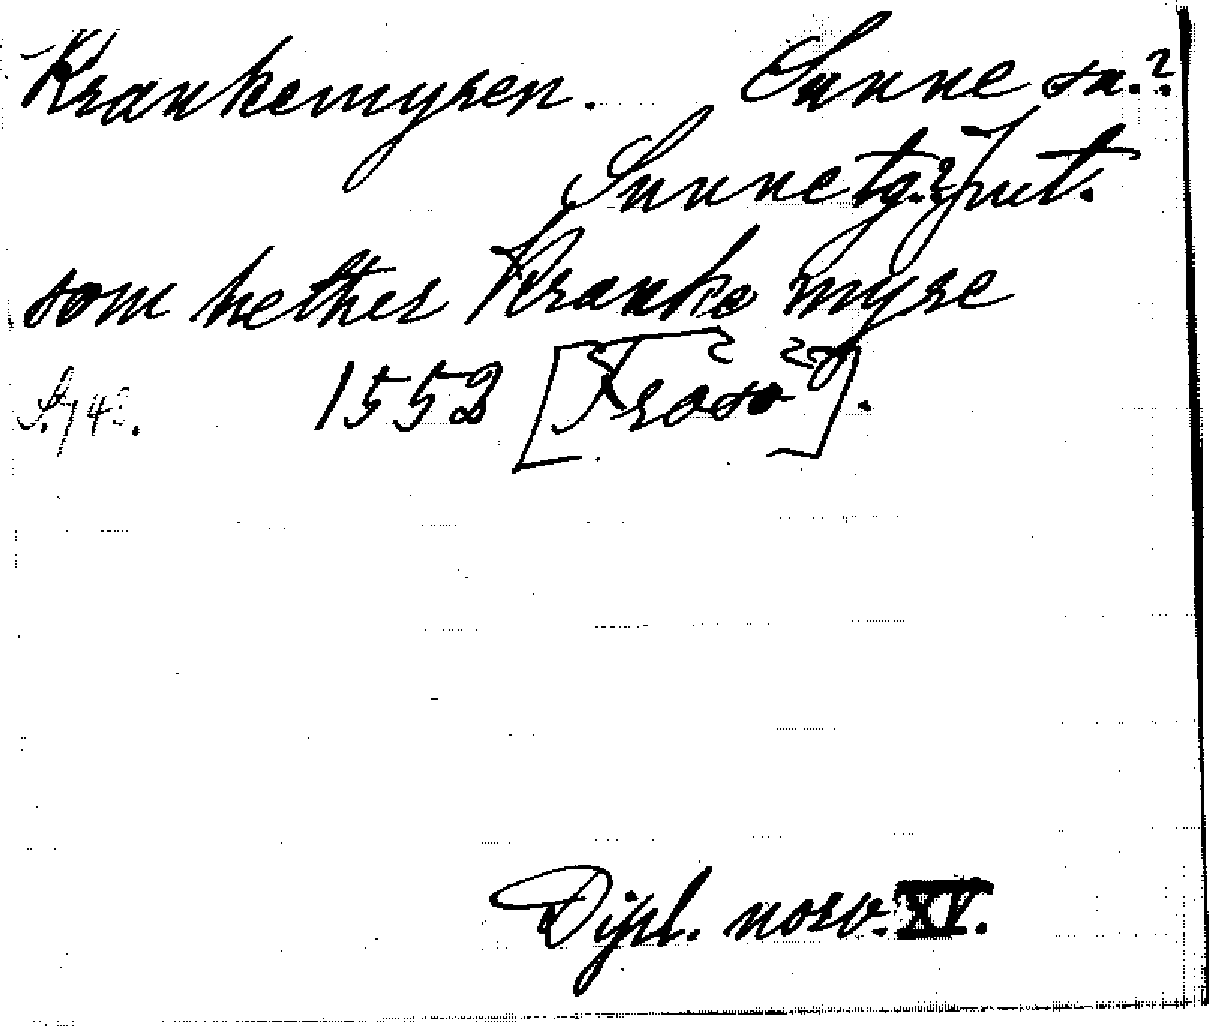 Krankemyren. Sunne sn.?
Sunne tg.? Jmt.
som hether Kranke myre
S. 743. 1552 [Frösö??].
Dipl. norv. XV.